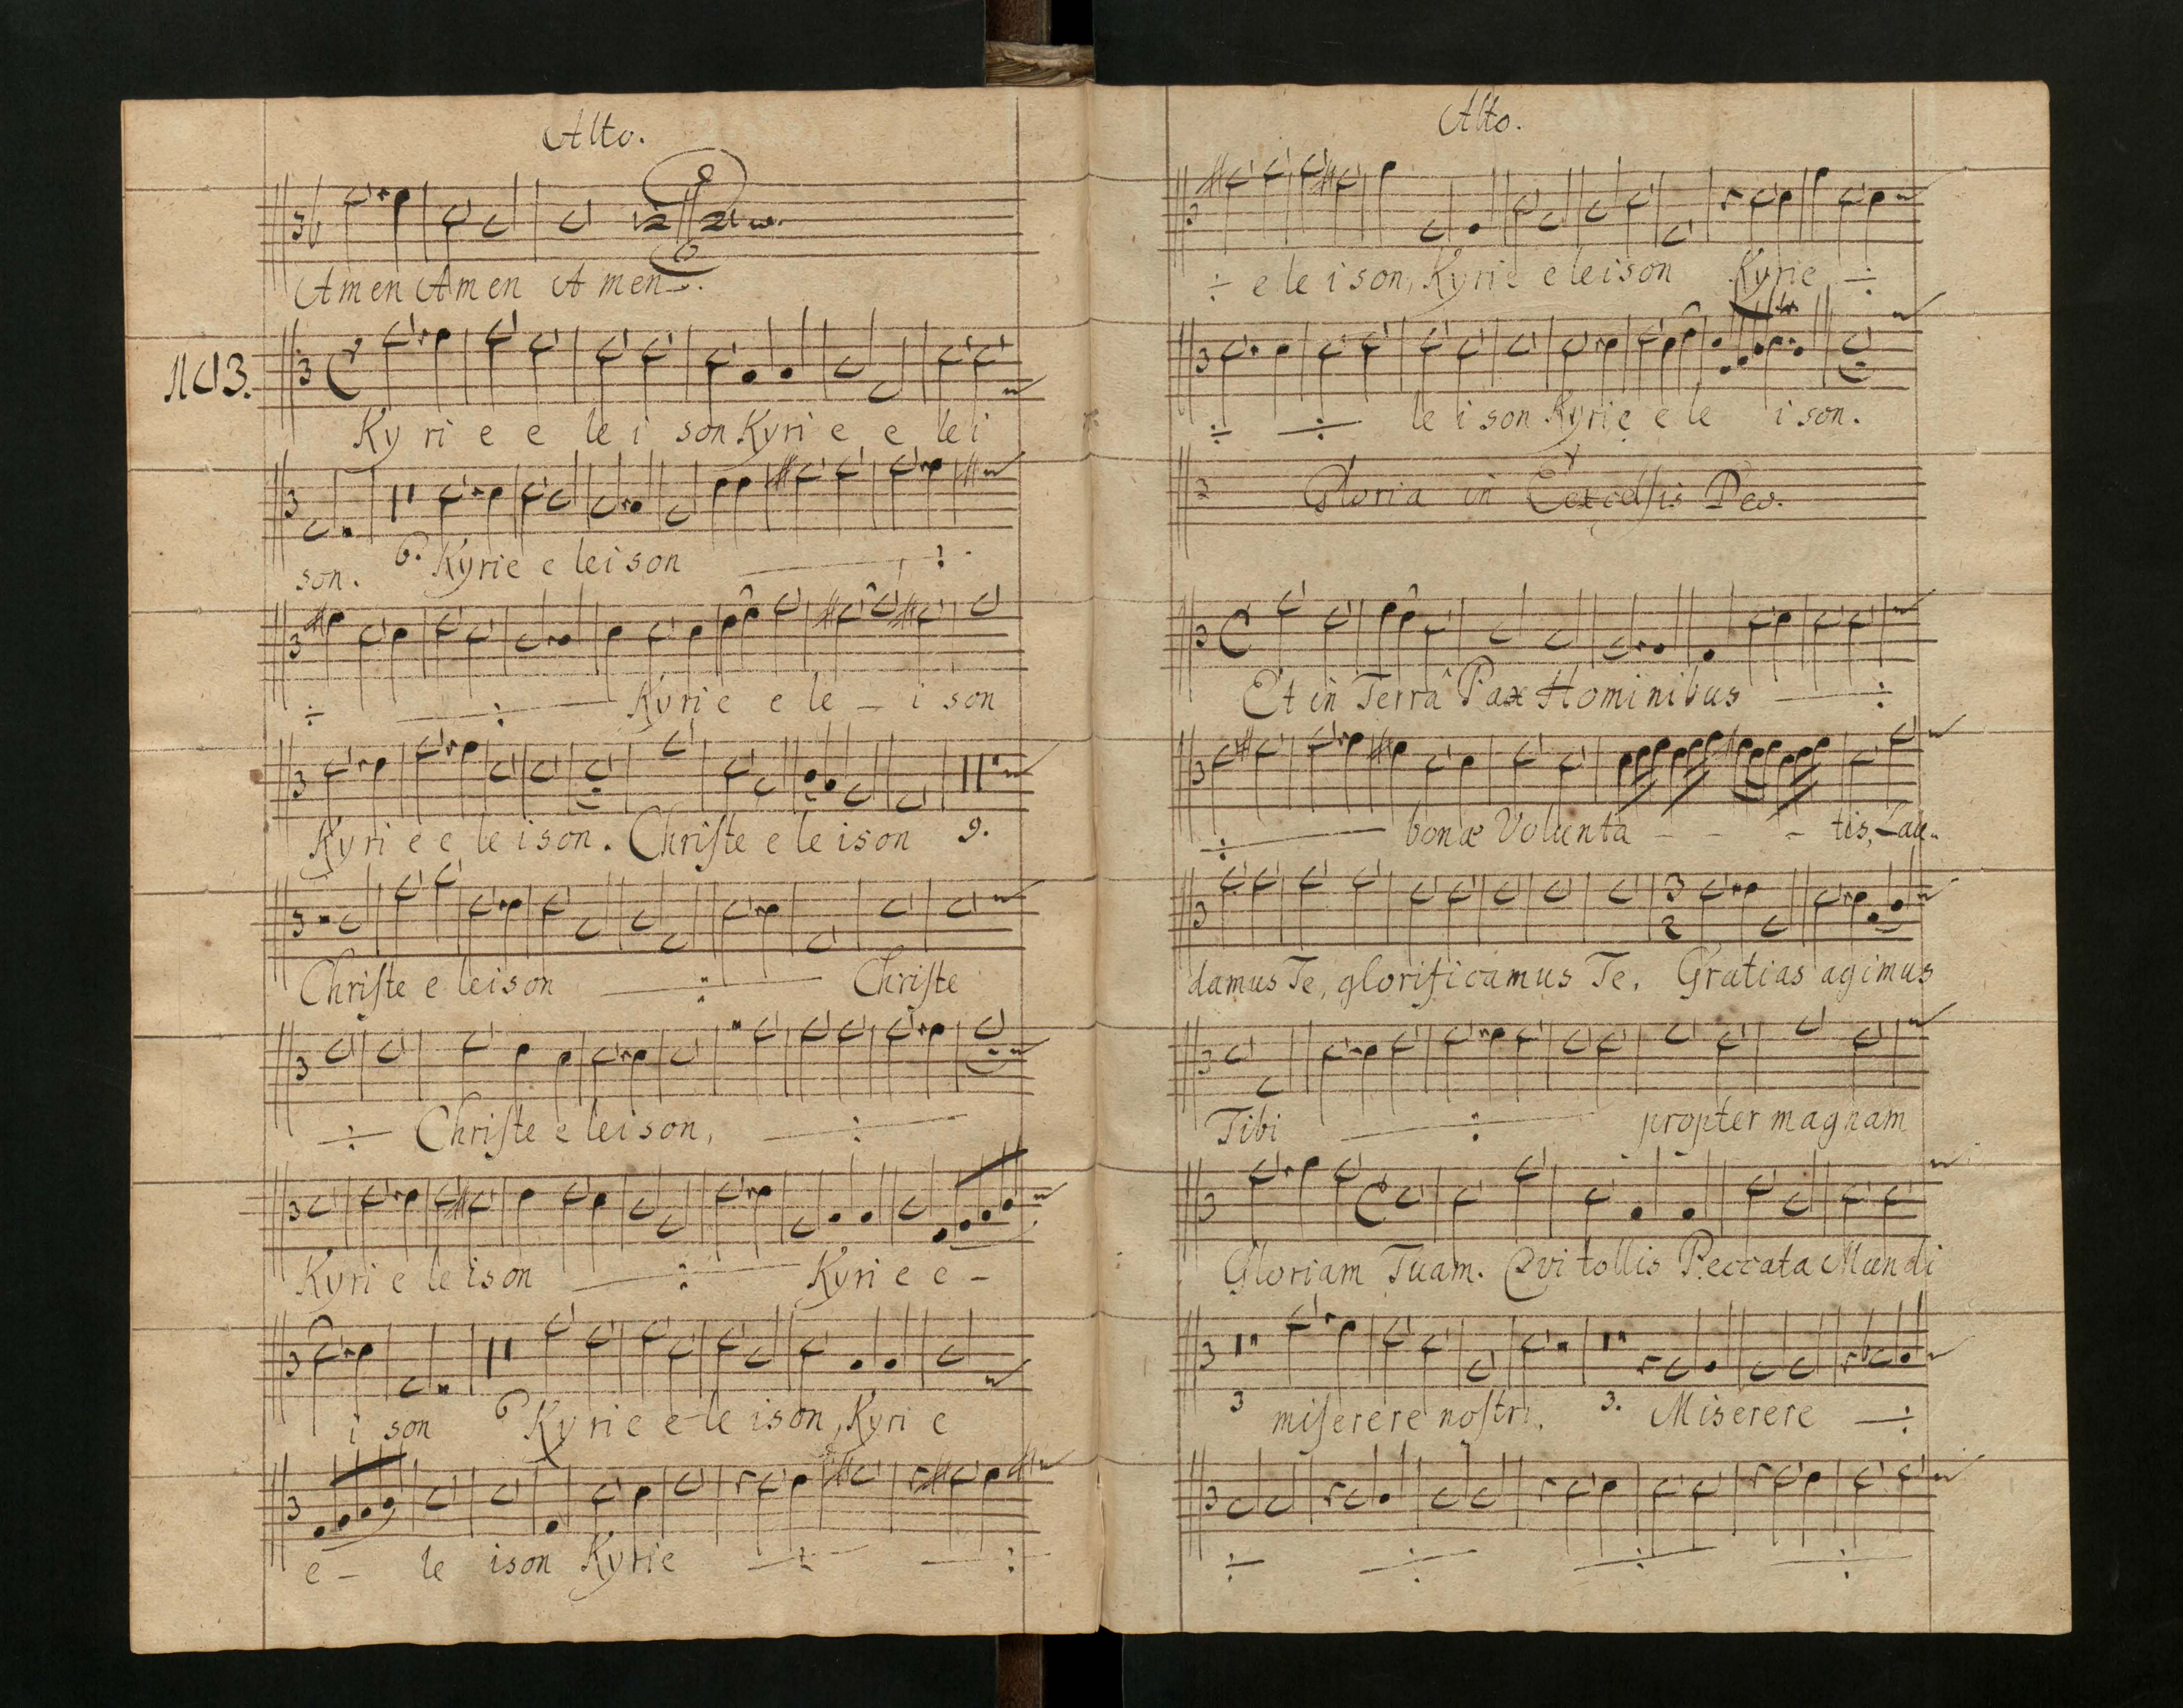 Alto.
Amen Amen Amen.
No 3.
Ky ri e e le i son Kyri e e lei
son. 6. Kyrie eleison ÷
÷ ÷ Kyrie e le – i son
Kyri e e le ison. Chriſte e le ison 9.
Chriſte e leison ÷ Chriſte
÷ Chriſte e leison, ÷
Kyri e le ison ÷ Kyri e e –
i son 6 Kyrie e le ison, Kyri e
e – le ison Kyrie ÷ ÷
Alto.
÷ e le i son, Kyrie eleison Kyrie ÷
÷ ÷ le i son Kyrie e le i son.
Gloria in Excelsis Deo.
Et in Terra Pax Hominibus ÷
÷ bonæ Volunta – – – tis, Lau„
damus Te, glorificamus Te. Gratias agimus
3
2
Tibi ÷ propter magnam
Gloriam Tuam. Qvi tollis Peccata Mundi
3 miſerere noſtri. 3. Miserere ÷
÷ ÷ ÷ ÷